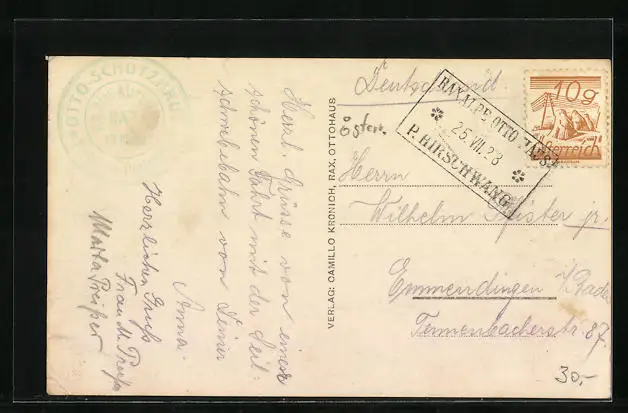 OTTO-SCHUTZHAUS
Herzl. Grüsse von einer
schönen Fahrt mit der Seil:
schwebebahn von Deiner
Anna
Herzlichen Gruß
Frau M.
Marta
VERLAG: CAMILLO KRONICH, RAX, OTTOHAUS
Deutschland.
österr.
RAXALPE OTTO HAUS
25.VII.28
P. HIRSCHWANG
10g
Österreich
Herrn
Wilhelm Pfister jr.
Emmendingen i/Baden
Tennenbacherstr. 87.
30.-